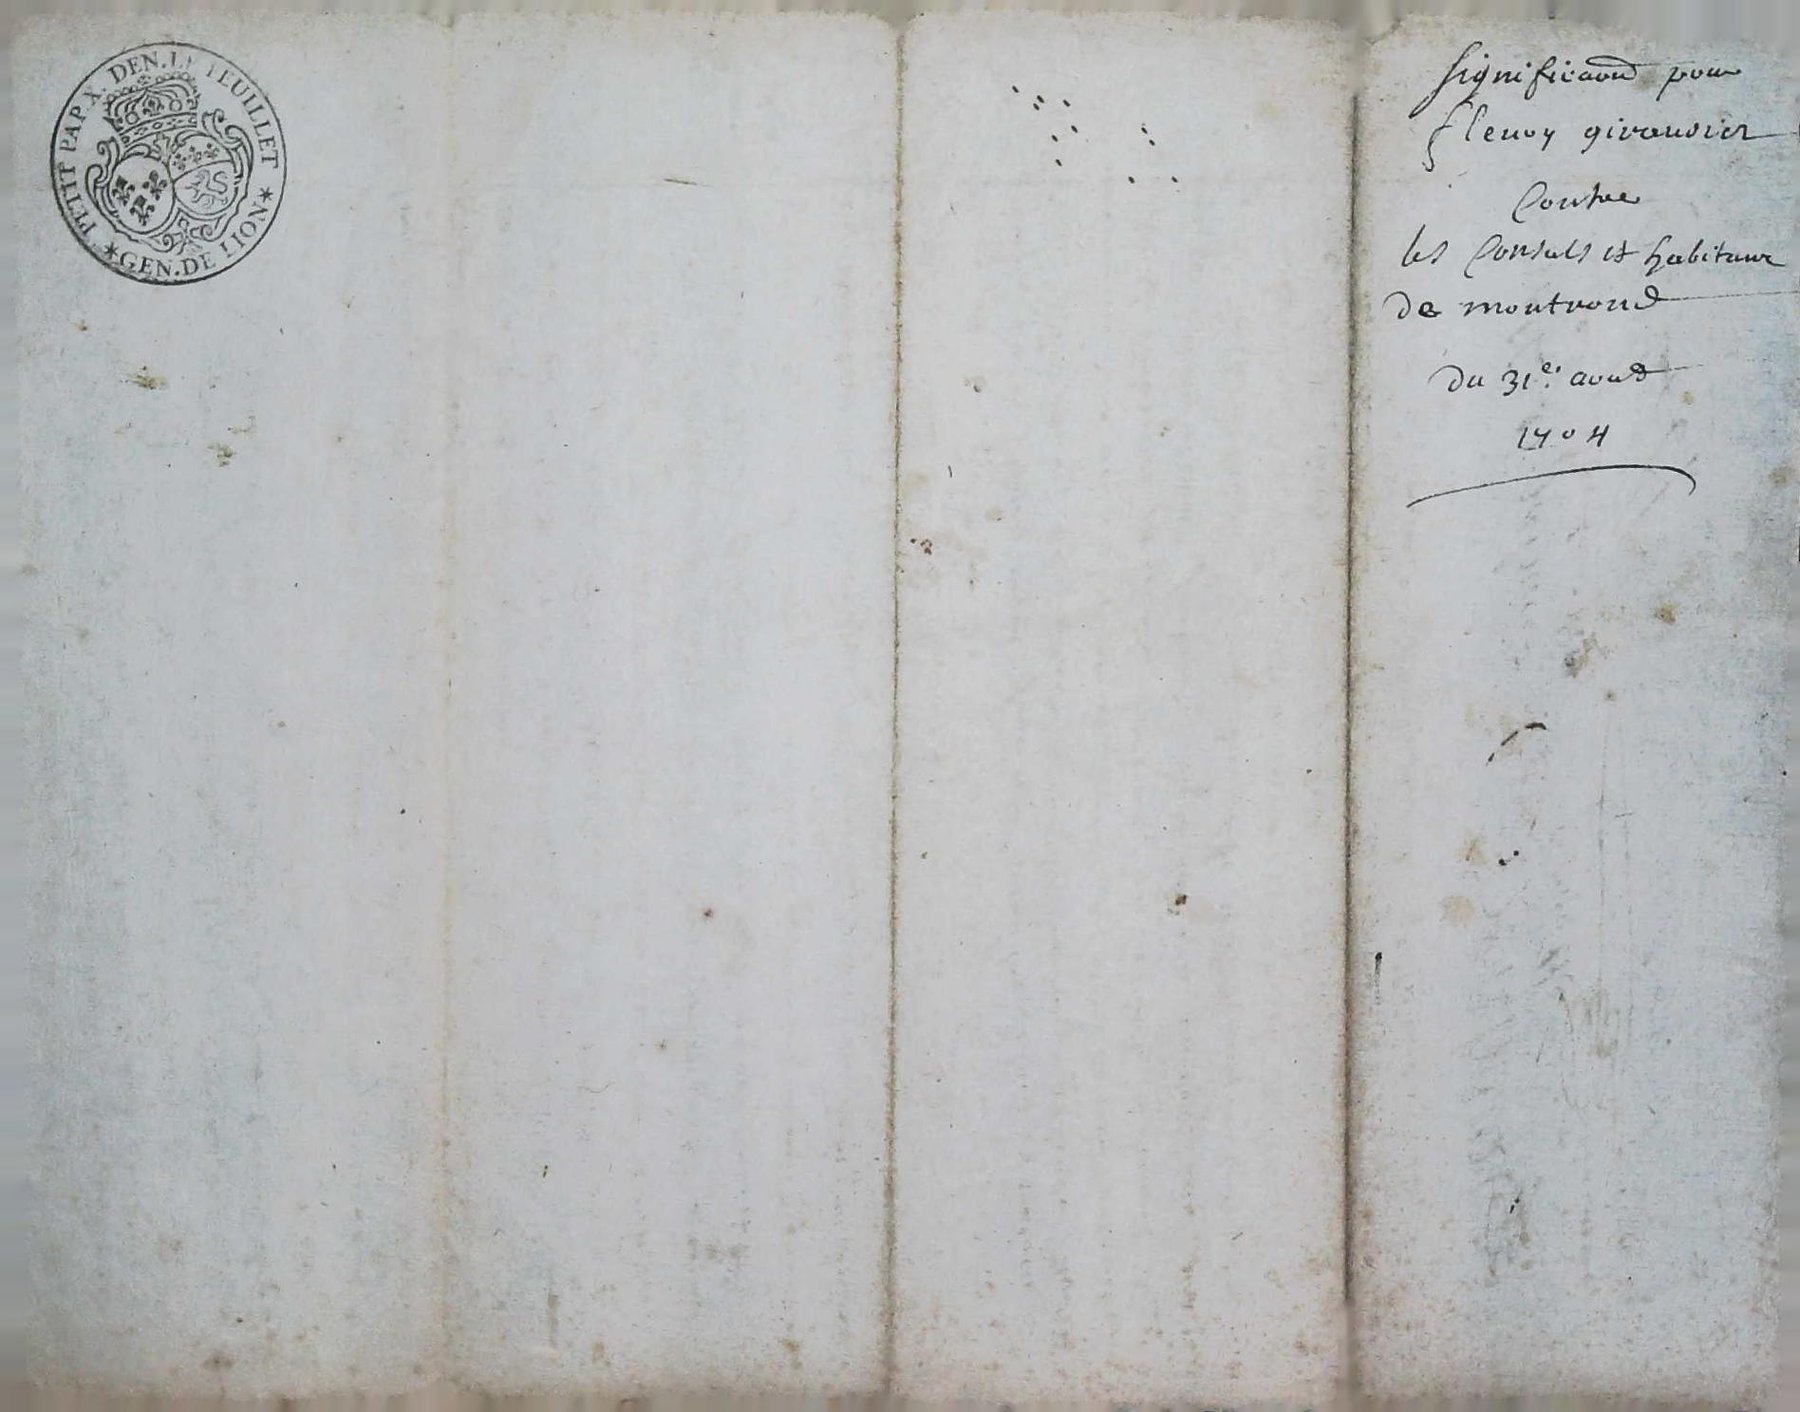 PETIT PAP. X. DEN. LE FEUILLET
* GEN. DE LION *
Significaond pour
fleury girandier
Contre
les Consuls et habitans
de montrond
du 31e. aoust
1704